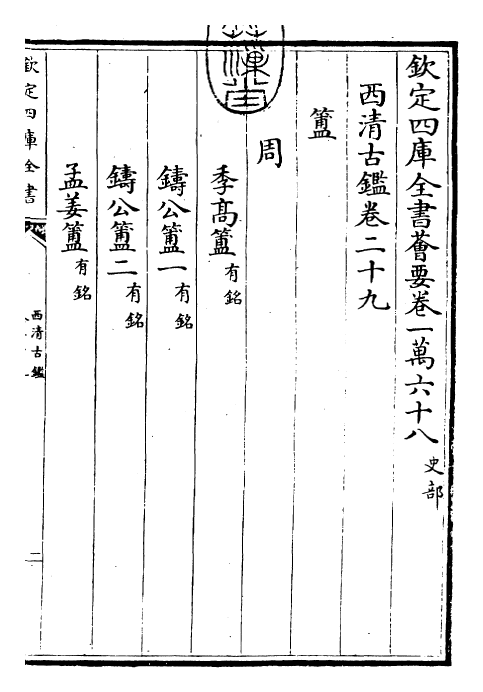 欽定四庫全書薈要卷一萬六十八 史部
西清古鑑卷二十九
簠
周
季高簠有銘
鑄公簠一有銘
鑄公簠二有銘
孟姜簠有銘
欽定四庫全書
西清古鑑